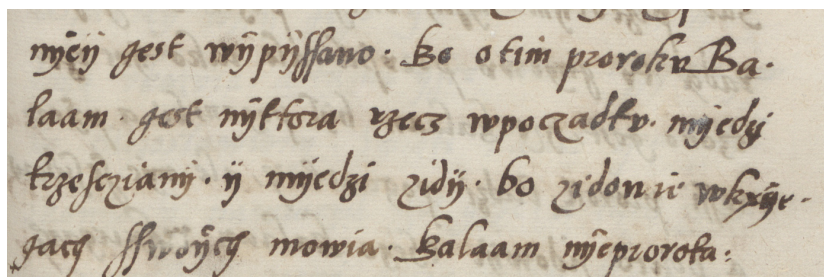 nÿeÿ gest wÿpÿssano. Bo o tim proroku Ba.
laam. gest nÿktora rzecz wpoczadku. mÿedzÿ
krzesczianÿ. ÿ mÿedzi zidÿ. bo zidowie wkxÿe.
gach sswoÿch mowia. Balaam nÿeproroka: